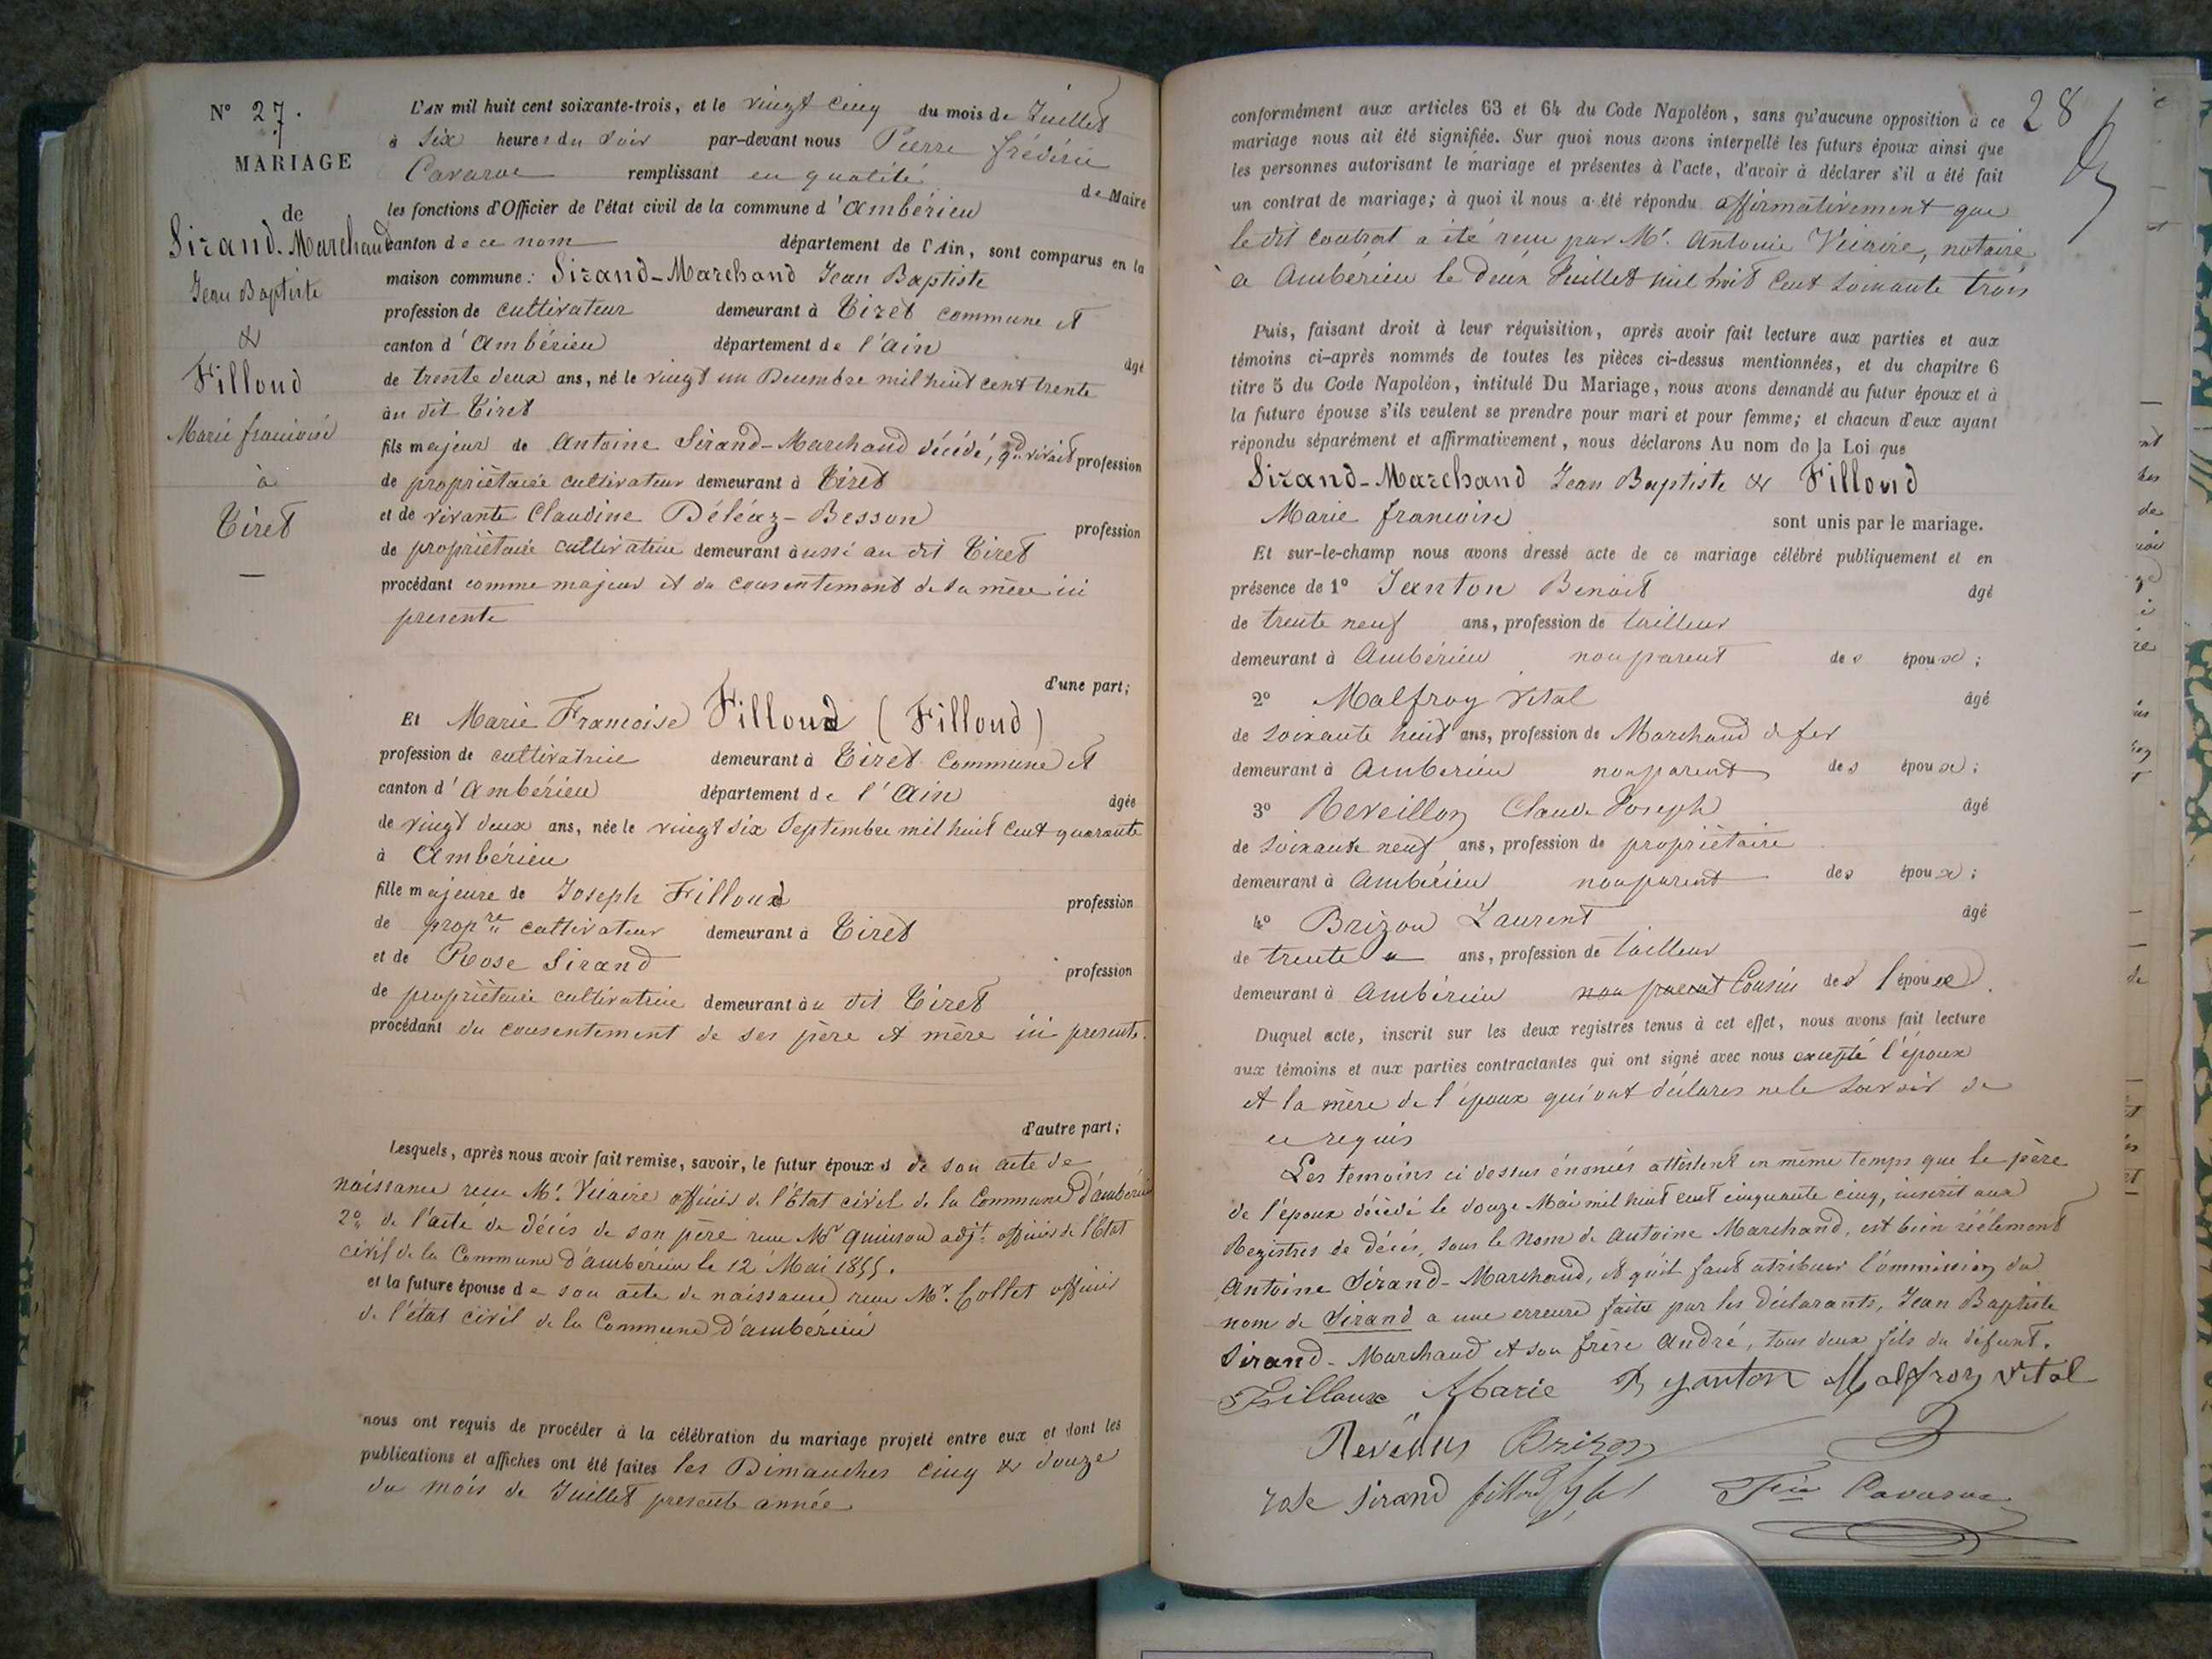 N° 27.
MARIAGE
de
Sirand-Marchand
Jean Baptiste
&
Filloud
Marie françoise
à
Tiret
L'AN mil huit cent soixante-trois, et le vingt cinq du mois de Juillet
à six heures du soir par-devant nous Pierre frédéric
Cavarne remplissant en qualité de Maire
les fonctions d'Officier de l'état civil de la commune d'Ambérieu
canton de ce nom département de l'Ain, sont comparus en la
maison commune: Sirand-Marchand Jean Baptiste
profession de cultivateur demeurant à Tiret commune et
canton d'Ambérieu département de l'Ain âgé
de trente deux ans, né le vingt un Decembre mil huit cent trente
au dit Tiret
fils majeur de Antoine Sirand-Marchand décédé, qd vivait profession
de propriétaire cultivateur demeurant à Tiret
et de vivante Claudine Déléaz-Besson profession
de propriétaire cultivatrice demeurant aussi au dit Tiret
procédant comme majeur et du consentement de sa mère ici
presente
d'une part;
Et Marie Françoise Filloud (Filloud)
profession de cultivatrice demeurant à Tiret commune et
canton d'Ambérieu département de l'Ain âgée
de vingt deux ans, née le vingt six Septembre mil huit cent quarante
à Ambérieu
fille majeure de Joseph Filloud profession
de propre cultivateur demeurant à Tiret
et de Rose Sirand profession
de propriétaire cultivatrice demeurant au dit Tiret
procédant du consentement de ses père et mère ici presents.
d'autre part;
Lesquels, après nous avoir fait remise, savoir, le futur époux de son acte de
naissance reçu Mr. Vicaire officier de l'Etat civil de la Commune d'ambérieu
2° de l'acte de décès de son père reçu Mr Quinson adjt officier de l'Etat
civil de la Commune d'ambérieu le 12 Mai 1855.
et la future épouse de son acte de naissance reçu Mr. Collet officier
de l'état civil de la Commune d'ambérieu
nous ont requis de procéder à la célébration du mariage projeté entre eux et dont les
publications et affiches ont été faites les Dimanches cinq & douze
du mois de Juillet presente année
28
conformément aux articles 63 et 64 du Code Napoléon, sans qu'aucune opposition à ce
mariage nous ait été signifiée. Sur quoi nous avons interpellé les futurs époux ainsi que
les personnes autorisant le mariage et présentes à l'acte, d'avoir à déclarer s'il a été fait
un contrat de mariage; à quoi il nous a été répondu affirmativement que
le dit contrat a été reçu par Mr. Antoine Vicaire, notaire
à Ambérieu le deux Juillet mil huit cent soixante trois
Puis, faisant droit à leur réquisition, après avoir fait lecture aux parties et aux
témoins ci-après nommés de toutes les pièces ci-dessus mentionnées, et du chapitre 6
titre 5 du Code Napoléon, intitulé Du Mariage, nous avons demandé au futur époux et à
la future épouse s'ils veulent se prendre pour mari et pour femme; et chacun d'eux ayant
répondu séparément et affirmativement, nous déclarons Au nom de la Loi que
Sirand-Marchand Jean Baptiste & Filloud
Marie françoise sont unis par le mariage.
Et sur-le-champ nous avons dressé acte de ce mariage célébré publiquement et en
présence de 1° Janton Benoit âgé
de trente neuf ans, profession de tailleur
demeurant à Ambérieu non parent des époux;
2° Malfroy Vital âgé
de soixante huit ans, profession de Marchand de fer
demeurant à Ambérieu non parent des époux;
3° Reveillon Claude Joseph âgé
de soixante neuf ans, profession de propriétaire
demeurant à Ambérieu non parent des époux;
4° Brizon Laurent âgé
de trente ans, profession de tailleur
demeurant à Ambérieu non parent Cousin de l'époux.
Duquel acte, inscrit sur les deux registres tenus à cet effet, nous avons fait lecture
aux témoins et aux parties contractantes qui ont signé avec nous excepté l'époux
et la mère de l'époux qui ont déclarés ne le savoir de
ce requis
Les temoins ci dessus énoncés attestent en même temps que le père
de l'époux décédé le douze Mai mil huit cent cinquante cinq, inscrit aux
Registres de décès, sous le nom de Antoine Marchand, est bien réélement
Antoine Sirand-Marchand, et qu'il faut atribuer l'ommission du
nom de Sirand a une erreure faite par les déclarants, Jean Baptiste
Sirand-Marchand et son frère André, tous deux fils du défunt.
Filloux Marie B Janton Malfroy Vital
Reveillon Brizon
rose sirand filloud
Fric Cavarne